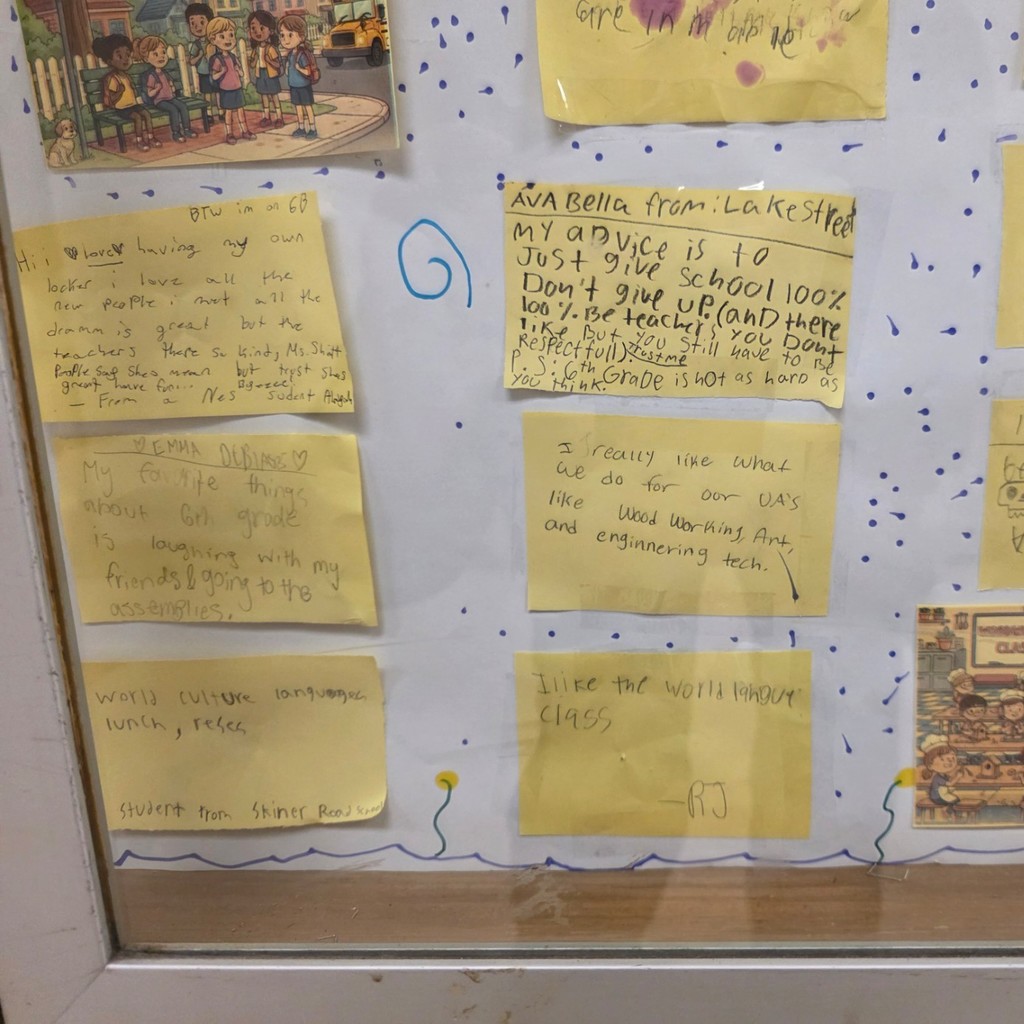 are in
BTW im on 6B
Hii love having my own
locker i love all the
new people i met all the
dramm is great but the
teachers there so kind, Ms.
People say shes mean but trust shes
great have fun...
- From a Nes sudent
AVA Bella from: Lake Street
MY ADVICE is to
Just give school 100%
Don't give up. (and there
100%. Be teachers you Dont
like But you still have to Be
Respectful). Trust me
P.S: 6th Grade is not as hard as
you think.
EMMA
My favorite things
about 6th grade
is laughing with my
friends & going to the
assemblies.
I really like what
we do for our UA's
like Wood Working, Art,
and enginnering tech.
world culture languages
lunch, reses
Student from Skiner Road
I like the world
class
-RJ